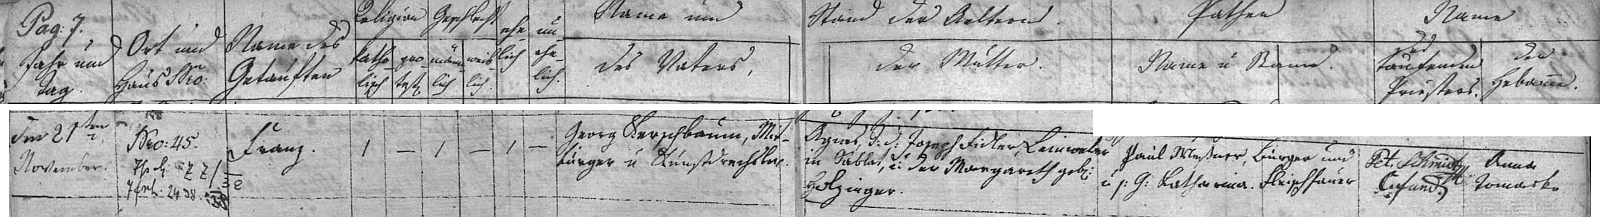 Pag: 7.
Jahr und
Tag.
Ort und
Haus Nro:
Name des
Getauften
Religion
katho
lisch
pro
test.
Geschlecht
män
lich
weib
lich
ehe
lich
un
ehe
lich.
Name und
des Vaters,
Stand der Aeltern.
der Mutter.
Pathen
Name u Stand.
Name
des
taufenden
Priesters.
der
Hebame.
den 21ten
November.
Nro: 45.
Franz.
1 — 1 — 1 —
Georg Kerschbaum, Mit-
bürger u Kunstdrechsler.
Agnes, d. d. Joseph Fidler, Leinweber
in Sabla, u: der Margareth geb:
Holzinger.
Paul Meßner, Bürger und
u s: G: Katharina. Fleischhauer
Pet. Schmidt
Anna
Tomaschko